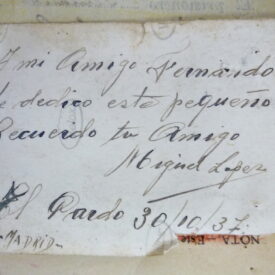 mi Amigo Fernando
te dedico este pequeño
Recuerdo tu Amigo
Miguel Lopez
El Pardo 30/10/37.
-MADRID-
NOTA
Este